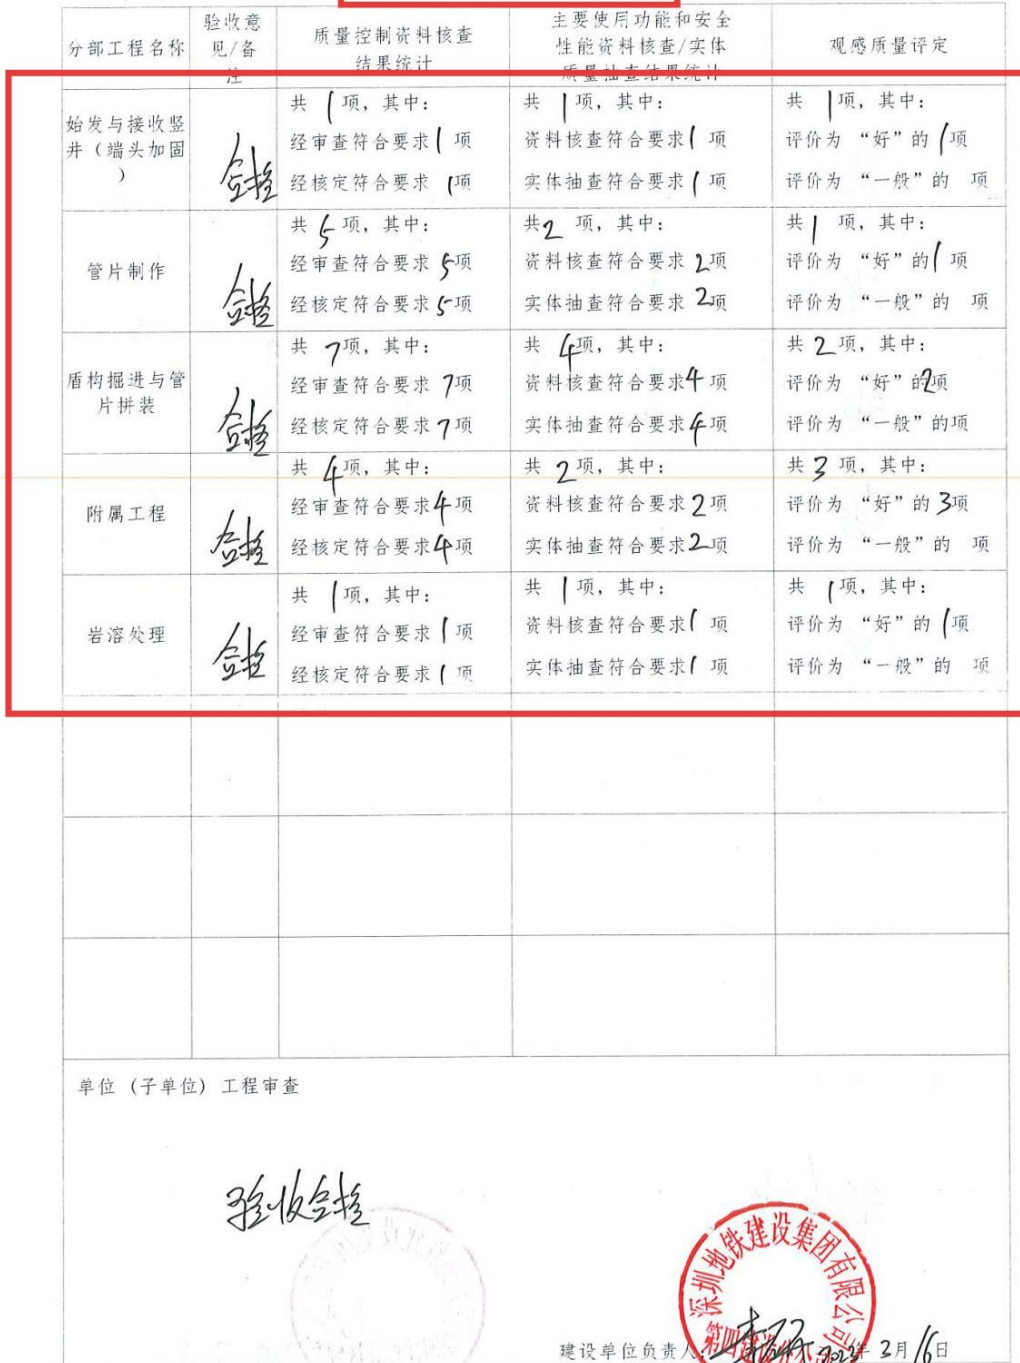 分部工程名称
验收意
见/备
注
质量控制资料核查
结果统计
主要使用功能和安全
性能资料核查/实体
质量抽查结果统计
观感质量评定
始发与接收竖
井（端头加固
）
合格
共 1项，其中：
经审查符合要求1 项
经核定符合要求 1项
共 1项，其中：
资料核查符合要求1 项
实体抽查符合要求1 项
共 1项，其中：
评价为 “好”的 1项
评价为 “一般”的 项
管片制作
合格
共 5 项，其中：
经审查符合要求 5项
经核定符合要求 5项
共2 项，其中：
资料核查符合要求 2项
实体抽查符合要求 2项
共 1 项，其中：
评价为 “好”的1 项
评价为 “一般”的 项
盾构掘进与管
片拼装
合格
共 7项，其中：
经审查符合要求 7项
经核定符合要求 7项
共 4项，其中：
资料核查符合要求4 项
实体抽查符合要求4 项
共 2 项，其中：
评价为 “好”的2项
评价为 “一般”的项
附属工程
合格
共 4项，其中：
经审查符合要求4项
经核定符合要求4项
共 2项，其中：
资料核查符合要求2项
实体抽查符合要求2项
共 3 项，其中：
评价为 “好”的 3项
评价为 “一般”的 项
岩溶处理
合格
共 1项，其中：
经审查符合要求 1 项
经核定符合要求 1 项
共 1项，其中：
资料核查符合要求1 项
实体抽查符合要求1 项
共 1项，其中：
评价为 “好”的 1项
评价为 “一般”的 项
单位（子单位）工程审查
验收合格
深圳地铁建设集团有限公司
建设单位负责人：
2023年 3月 16日